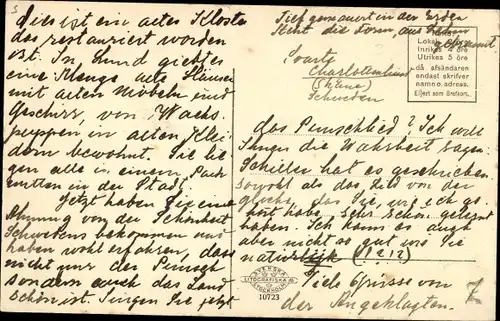 3
dies ist ein altes Kloster
das restauriert worden
ist. In Lund giebt es
eine Menge alte Häuser
mit alten Möbeln und
Geschirr, von Wachs
puppen in alten Klei
dern bewohnt. Sie lie
gen alle in einem Park
mitten in der Stadt.
Jetzt haben Sie eine
Ahnung von der Schönheit
Schwedens bekommen und
haben wohl erfahren, dass
nicht nur der Punsch
sondern auch das Land
schön ist. Singen Sie jetzt
Tief gemauert in der Erden
Steht die Form, aus Lehm
gebrannt
Charlottenlund
(Skåne)
Schweden
Lokalt
Inrikes 4 öre
Utrikes 5 öre
då afsändaren
endast skrifver
namn o. adress.
Eljest som Brefkort.
das Punschlied? Ich will
Ihnen die Wahrheit sagen.
Schiller hat es geschrieben
sowohl als das Lied von der
Glocke, das Sie, wie ich ge
hört habe, sehr schön gelernt
haben. Ich kann es auch
aber nicht so gut wie Sie
natürlich (!?!?)
Viele Grüsse von
der Angeklagten.
SVENSKA
LITOGRAFISKA
STOCKHOLM
10723